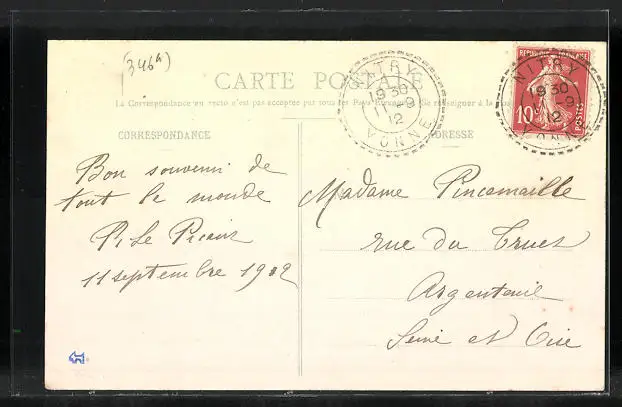 (346a)
CARTE POSTALE
La Correspondance au recto n'est pas acceptée par tous les Pays Etrangers (Se renseigner à la poste
CORRESPONDANCE
ADRESSE
NITRY
19 30
11 -9
12
YONNE
REPUBLIQUE FRANÇAISE
10c
POSTES
NITRY
19 30
11 -9
12
YONNE
Bon souvenir de
tout le monde
P. Le
11 septembre 1912
Madame Pincemaille
rue du
Argenteuil
Seine et Oise